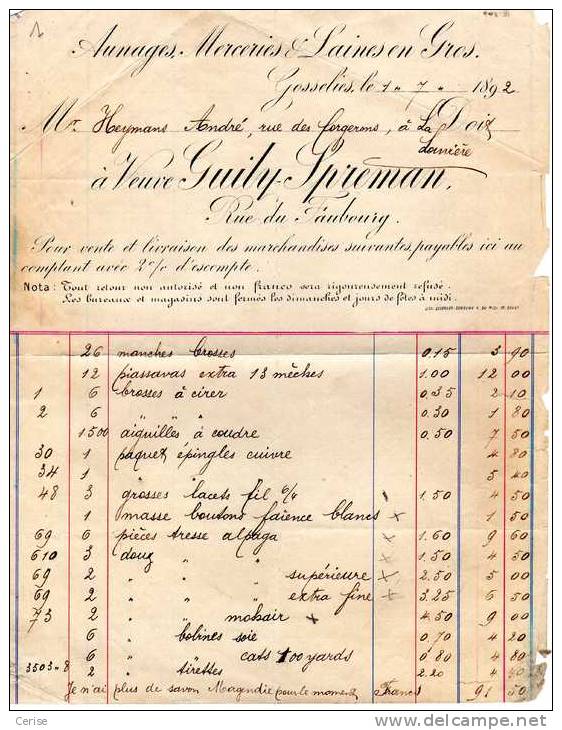 Aunages, Merceries & Laines en Gros.
Gosselies, le 1 " 7 " 1892
Mr. Heymans André, rue des forgerons, à La Doiz
Lownière
à Veuve Guily-Spreman,
Rue du Faubourg.
Pour vente et livraison des marchandises suivantes, payables ici au
comptant avec 2% d'escompte.
Nota: Tout retour non autorisé et non franco sera rigoureusement refusé.
Les bureaux et magasins sont fermés les dimanches et jours de fêtes à midi.
26 manches brosses 0.15 3 90
12 piassavas extra 13 mêches 1.00 12 00
1 6 brosses à cirer 0.35 2 10
2 6 " " " 0.30 1 80
1500 aiguilles à coudre 0.50 7 50
30 1 paquet épingles cuivre 4 80
34 1 " " " 5 40
48 3 grosses lacets fil 6/4 1.50 4 50
1 masse boutons faïence blancs x 1 50
69 6 pièces tresse alpaga 1.60 9 60
610 3 douz " " 1.50 4 50
69 2 " " supérieure x 2.50 5 00
69 2 " " extra fine x 3.25 6 50
73 2 " mohair x 4.50 9 00
6 " bobines soie 0.70 4 20
6 " " cats 100 yards 0.80 4 80
3503 " 8 2 " tirettes 2.20 4 40
Je n'ai plus de savon Magendie pour le moment Francs 91 50
Cerise
www.delcampe.net